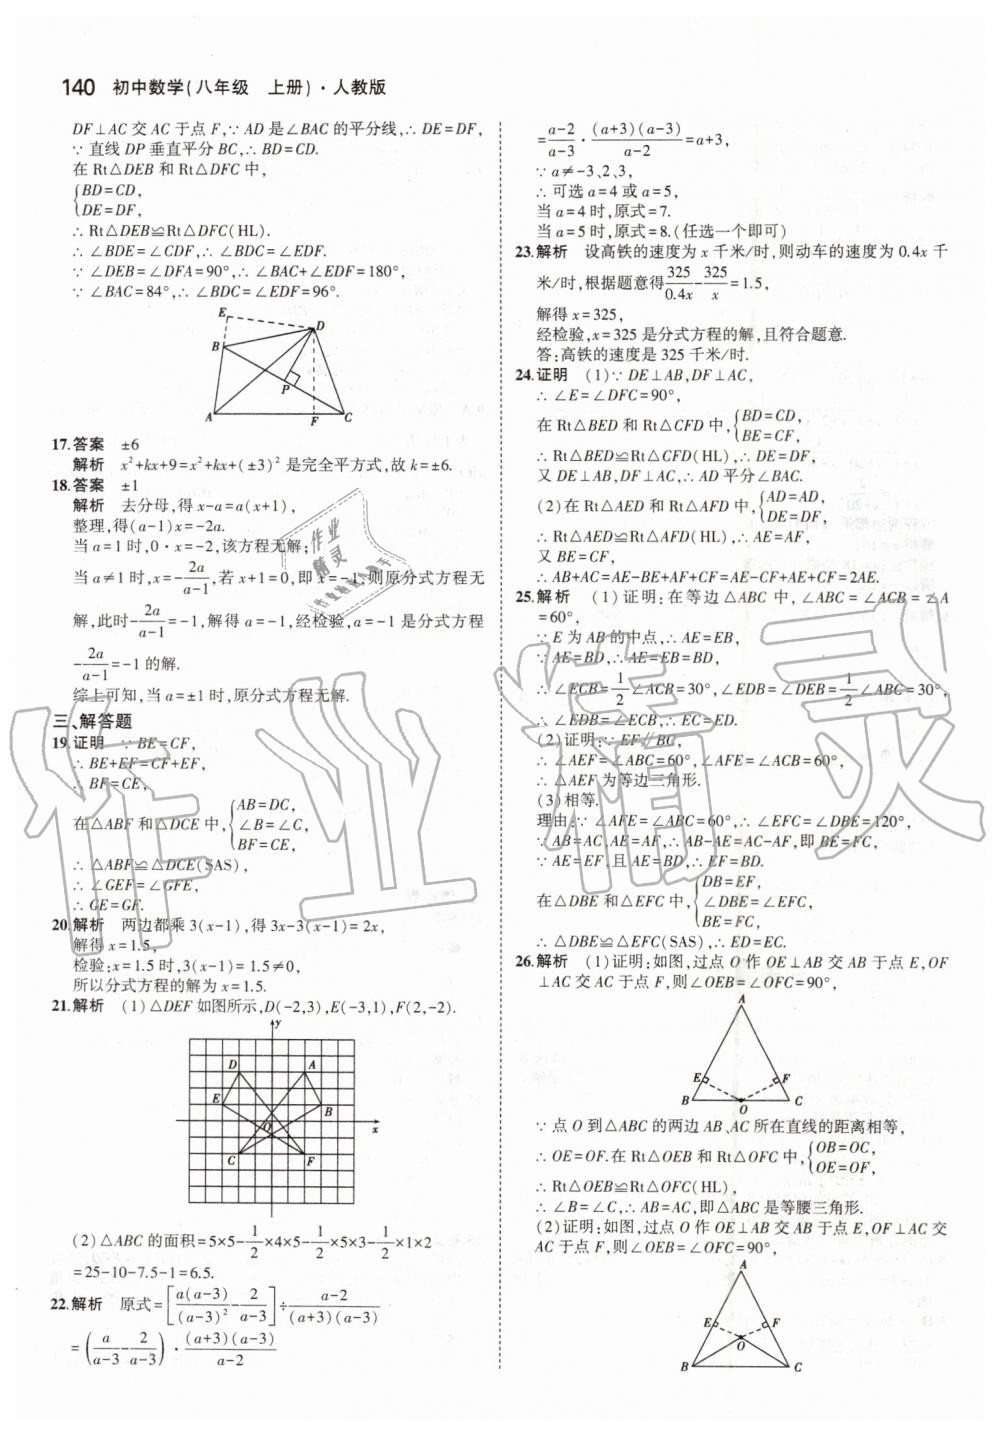 140 初中数学(八年级 上册)·人教版
DF⊥AC交AC于点F,∵AD是∠BAC的平分线,∴DE=DF,
∵直线DP垂直平分BC,∴BD=CD.
在Rt△DEB和Rt△DFC中,
{BD=CD,
DE=DF,
∴Rt△DEB≌Rt△DFC(HL).
∴∠BDE=∠CDF,∴∠BDC=∠EDF.
∵∠DEB=∠DFA=90°,∴∠BAC+∠EDF=180°,
∵∠BAC=84°,∴∠BDC=∠EDF=96°.
E D B P A F C
17.答案 ±6
解析 x²+kx+9=x²+kx+(±3)²是完全平方式,故k=±6.
18.答案 ±1
解析 去分母,得x-a=a(x+1),
整理,得(a-1)x=-2a.
当a=1时,0·x=-2,该方程无解;
当a≠1时,x=-2a/(a-1),若x+1=0,即x=-1,则原分式方程无
解,此时-2a/(a-1)=-1,解得a=-1,经检验,a=-1是分式方程
-2a/(a-1)=-1的解.
综上可知,当a=±1时,原分式方程无解.
三、解答题
19.证明 ∵BE=CF,
∴BE+EF=CF+EF,
∴BF=CE,
在△ABF和△DCE中,{AB=DC,
∠B=∠C,
BF=CE,
∴△ABF≌△DCE(SAS),
∴∠GEF=∠GFE,
∴GE=GF.
20.解析 两边都乘3(x-1),得3x-3(x-1)=2x,
解得x=1.5,
检验:x=1.5时,3(x-1)=1.5≠0,
所以分式方程的解为x=1.5.
21.解析 (1)△DEF如图所示,D(-2,3),E(-3,1),F(2,-2).
y D A E B O x C F
(2)△ABC的面积=5×5-1/2×4×5-1/2×5×3-1/2×1×2
=25-10-7.5-1=6.5.
22.解析 原式=[a(a-3)/(a-3)²-2/(a-3)]÷(a-2)/((a+3)(a-3))
=(a/(a-3)-2/(a-3))·(a+3)(a-3)/(a-2)
=(a-2)/(a-3)·(a+3)(a-3)/(a-2)=a+3,
∵a≠-3、2、3,
∴可选a=4或a=5,
当a=4时,原式=7.
当a=5时,原式=8.(任选一个即可)
23.解析 设高铁的速度为x千米/时,则动车的速度为0.4x千
米/时,根据题意得325/0.4x-325/x=1.5,
解得x=325,
经检验,x=325是分式方程的解,且符合题意.
答:高铁的速度是325千米/时.
24.证明 (1)∵DE⊥AB,DF⊥AC,
∴∠E=∠DFC=90°,
在Rt△BED和Rt△CFD中,{BD=CD,
BE=CF,
∴Rt△BED≌Rt△CFD(HL),∴DE=DF,
又DE⊥AB,DF⊥AC,∴AD平分∠BAC.
(2)在Rt△AED和Rt△AFD中,{AD=AD,
DE=DF,
∴Rt△AED≌Rt△AFD(HL),∴AE=AF,
又BE=CF,
∴AB+AC=AE-BE+AF+CF=AE-CF+AE+CF=2AE.
25.解析 (1)证明:在等边△ABC中,∠ABC=∠ACB=∠A
=60°,
∵E为AB的中点,∴AE=EB,
∵AE=BD,∴AE=EB=BD,
∴∠ECB=1/2∠ACB=30°,∠EDB=∠DEB=1/2∠ABC=30°,
∴∠EDB=∠ECB,∴EC=ED.
(2)证明:∵EF∥BC,
∴∠AEF=∠ABC=60°,∠AFE=∠ACB=60°,
∴△AEF为等边三角形.
(3)相等.
理由:∵∠AFE=∠ABC=60°,∴∠EFC=∠DBE=120°,
∵AB=AC,AE=AF,∴AB-AE=AC-AF,即BE=FC,
∵AE=EF,且AE=BD,∴EF=BD.
在△DBE和△EFC中,{DB=EF,
∠DBE=∠EFC,
BE=FC,
∴△DBE≌△EFC(SAS),∴ED=EC.
26.解析 (1)证明:如图,过点O作OE⊥AB交AB于点E,OF
⊥AC交AC于点F,则∠OEB=∠OFC=90°,
A E F B O C
∵点O到△ABC的两边AB、AC所在直线的距离相等,
∴OE=OF.在Rt△OEB和Rt△OFC中,{OB=OC,
OE=OF,
∴Rt△OEB≌Rt△OFC(HL),
∴∠B=∠C,∴AB=AC,即△ABC是等腰三角形.
(2)证明:如图,过点O作OE⊥AB交AB于点E,OF⊥AC交
AC于点F,则∠OEB=∠OFC=90°,
A E F O B C
作业精灵